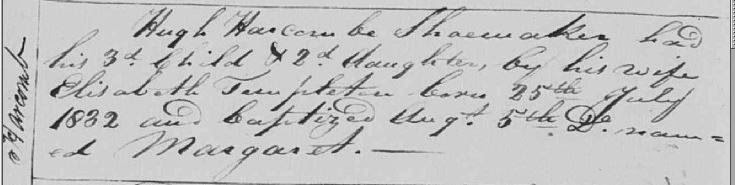 Harcomb
Hugh Harcombe Shoemaker had
his 3d. Child & 2d. daughter, by his wife
Elisabeth Templeton born 25th July
1832 and baptized Augt. 5th. Do. nam=
ed Margaret. —